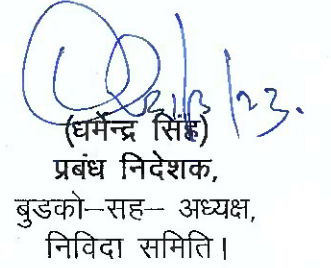 (धर्मेन्द्र सिंह)
प्रबंध निदेशक,
बुडको–सह– अध्यक्ष,
निविदा समिति।